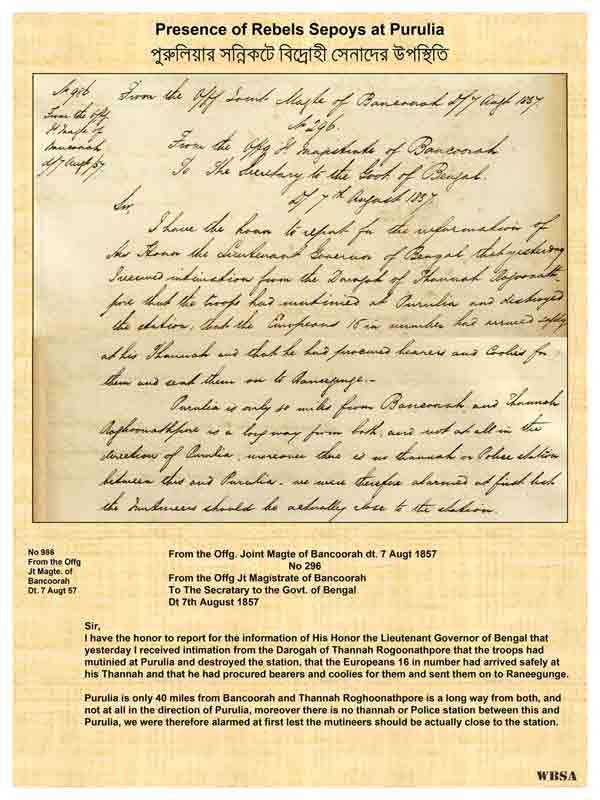 Presence of Rebels Sepoys at Purulia
পুরুলিয়ার সন্নিকটে বিদ্রোহী সেনাদের উপস্থিতি
No 986
From the Offg
Jt Magte of
Bancoorah
dt 7 Augt 57
From the Offg Joint Magte of Bancoorah dt 7 Augt 1857
No 296.
From the Offg Jt Magistrate of Bancoorah
To The Secretary to the Govt. of Bengal.
dt 7th August 1857.
Sir,
I have the honor to report for the information of
His Honor the Lieutenant Governor of Bengal that yesterday
I received intimation from the Darogah of Thannah Rogoonath-
pore that the troops had mutinied at Purulia and destroyed
the station, that the Europeans 16 in number had arrived safely
at his Thannah and that he had procured bearers and Coolies for
them and sent them on to Raneegunge.-
Purulia is only 40 miles from Bancoorah and Thannah
Roghoonathpore is a long way from both, and not at all in the
direction of Purulia, moreover there is no thannah or Police station
between this and Purulia. we were therefore alarmed at first lest
the Mutineers should be actually close to the station.
No 986
From the Offg
Jt Magte. of
Bancoorah
Dt. 7 Augt 57
From the Offg. Joint Magte of Bancoorah dt. 7 Augt 1857
No 296
From the Offg Jt Magistrate of Bancoorah
To The Scratary to the Govt. of Bengal
Dt 7th August 1857
Sir,
I have the honor to report for the information of His Honor the Lieutenant Governor of Bengal that
yesterday I received intimation from the Darogah of Thannah Rogoonathpore that the troops had
mutinied at Purulia and destroyed the station, that the Europeans 16 in number had arrived safely at
his Thannah and that he had procured bearers and coolies for them and sent them on to Raneegunge.
Purulia is only 40 miles from Bancoorah and Thannah Roghoonathpore is a long way from both, and
not at all in the direction of Purulia, moreover there is no thannah or Police station between this and
Purulia, we were therefore alarmed at first lest the mutineers should be actually close to the station.
WBSA